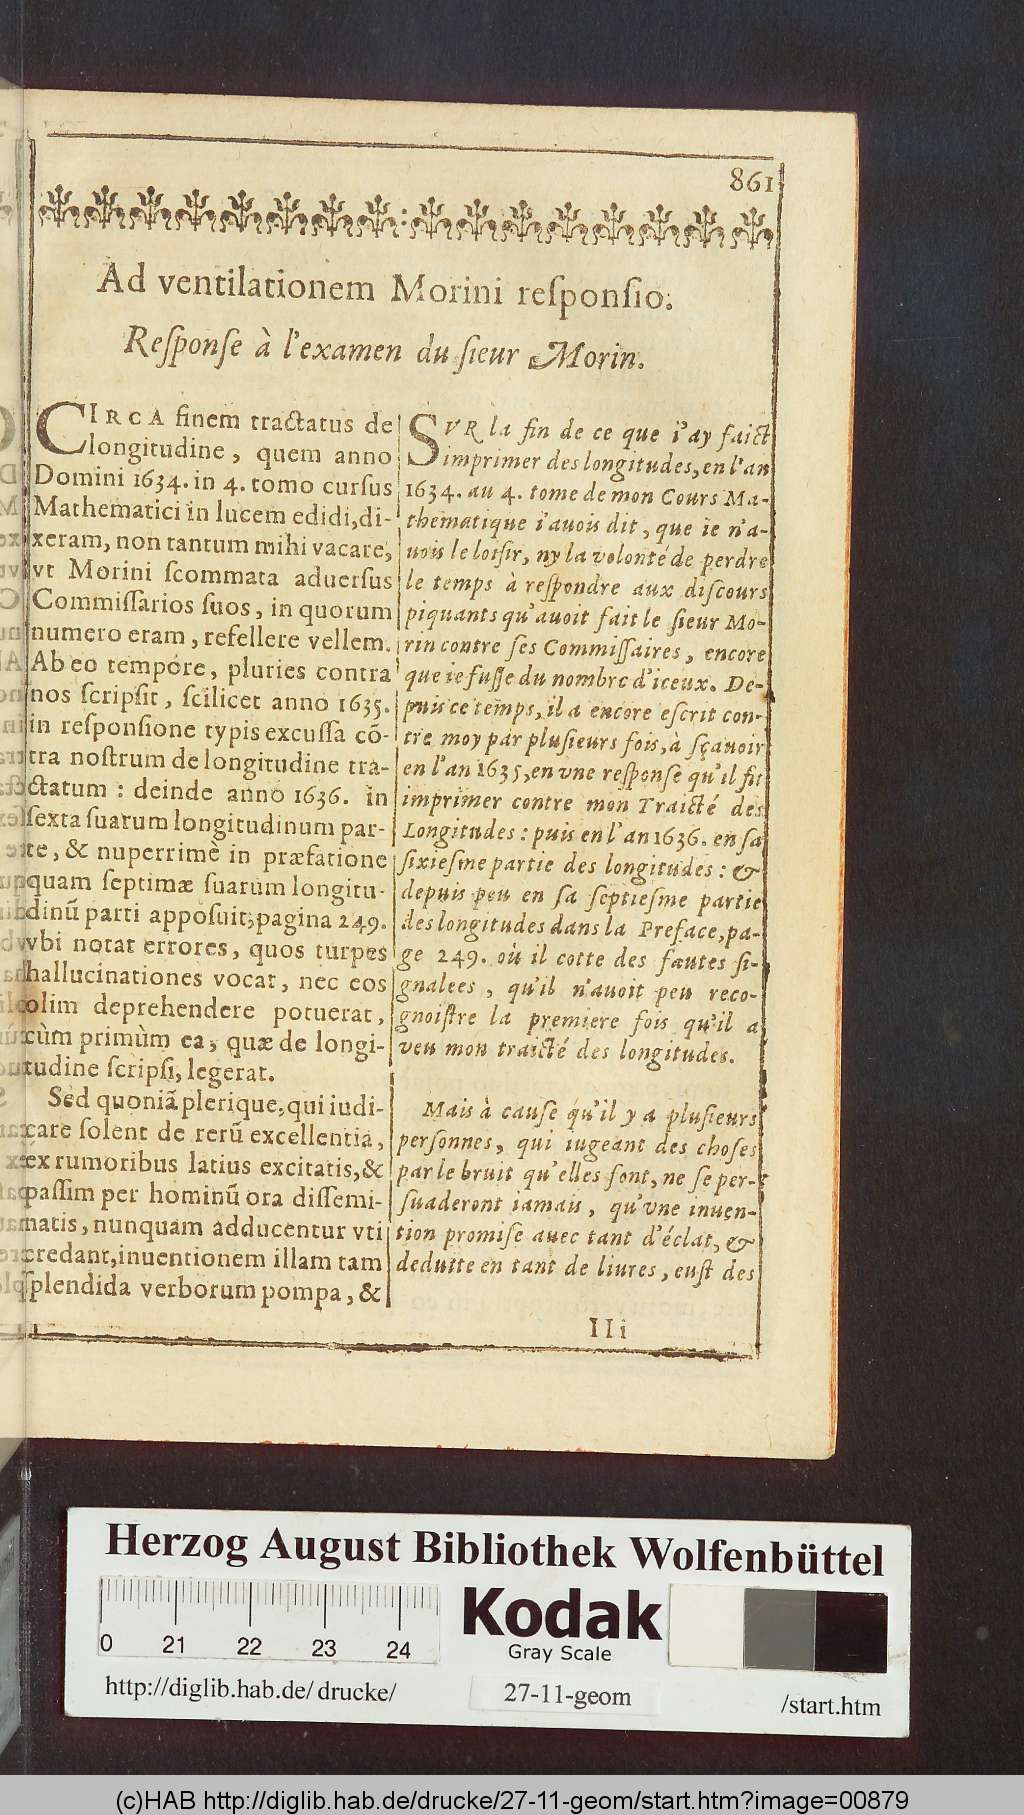 861
Ad ventilationem Morini reſponſio.
Reſponſe à l'examen du ſieur Morin.
CIRCA finem tractatus de
longitudine, quem anno
Domini 1634. in 4. tomo curſus
Mathematici in lucem edidi, di-
xeram, non tantum mihi vacare,
vt Morini ſcommata aduerſus
Commiſſarios ſuos, in quorum
numero eram, refellere vellem.
Ab eo tempore, pluries contra
nos ſcripſit, ſcilicet anno 1635.
in reſponſione typis excuſſa cō-
tra noſtrum de longitudine tra-
ctatum : deinde anno 1636. in
ſexta ſuarum longitudinum par-
te, & nuperrimè in præfatione
quam ſeptimæ ſuarum longitu-
dinū parti appoſuit, pagina 249.
vbi notat errores, quos turpes
hallucinationes vocat, nec eos
olim deprehendere potuerat,
cùm primùm ea, quæ de longi-
tudine ſcripſi, legerat.
Sed quoniā plerique, qui iudi-
care ſolent de rerū excellentia,
ex rumoribus latius excitatis, &
paſſim per hominū ora diſſemi-
natis, nunquam adducentur vti
credant, inuentionem illam tam
ſplendida verborum pompa, &
SVR la fin de ce que i'ay faict
imprimer des longitudes, en l'an
1634. au 4. tome de mon Cours Ma-
thematique i'auois dit, que ie n'a-
uois le loiſir, ny la volonté de perdre
le temps à reſpondre aux diſcours
piquants qu'auoit fait le ſieur Mo-
rin contre ſes Commiſſaires, encore
que ie fuſſe du nombre d'iceux. De-
puis ce temps, il a encore eſcrit con-
tre moy par pluſieurs fois, à ſçauoir
en l'an 1635, en vne reſponſe qu'il fit
imprimer contre mon Traicté des
Longitudes : puis en l'an 1636. en ſa
ſixieſme partie des longitudes : &
depuis peu en ſa ſeptieſme partie
des longitudes dans la Preface, pa-
ge 249. où il cotte des fautes ſi-
gnalees, qu'il n'auoit peu reco-
gnoiſtre la premiere fois qu'il a
veu mon traicté des longitudes.
Mais à cauſe qu'il y a pluſieurs
perſonnes, qui iugeant des choſes
par le bruit qu'elles font, ne ſe per-
ſuaderont iamais, qu'vne inuen-
tion promiſe auec tant d'éclat, &
deduite en tant de liures, euſt des
IIi
Herzog August Bibliothek Wolfenbüttel
0 21 22 23 24
Kodak
Gray Scale
http://diglib.hab.de/drucke/ 27-11-geom /start.htm
(c)HAB http://diglib.hab.de/drucke/27-11-geom/start.htm?image=00879